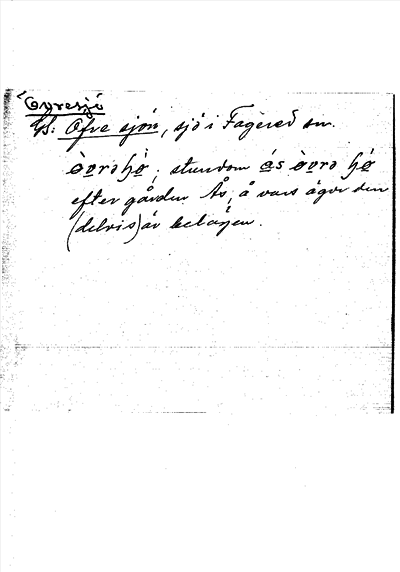 Övresjö
Gs: Öfre sjön, sjö i Fagered sn.
òvrə ɧø̀; stundom ás òvrə ɧø̀
efter gården Ås, å vars ägor den
(delvis) är belägen.